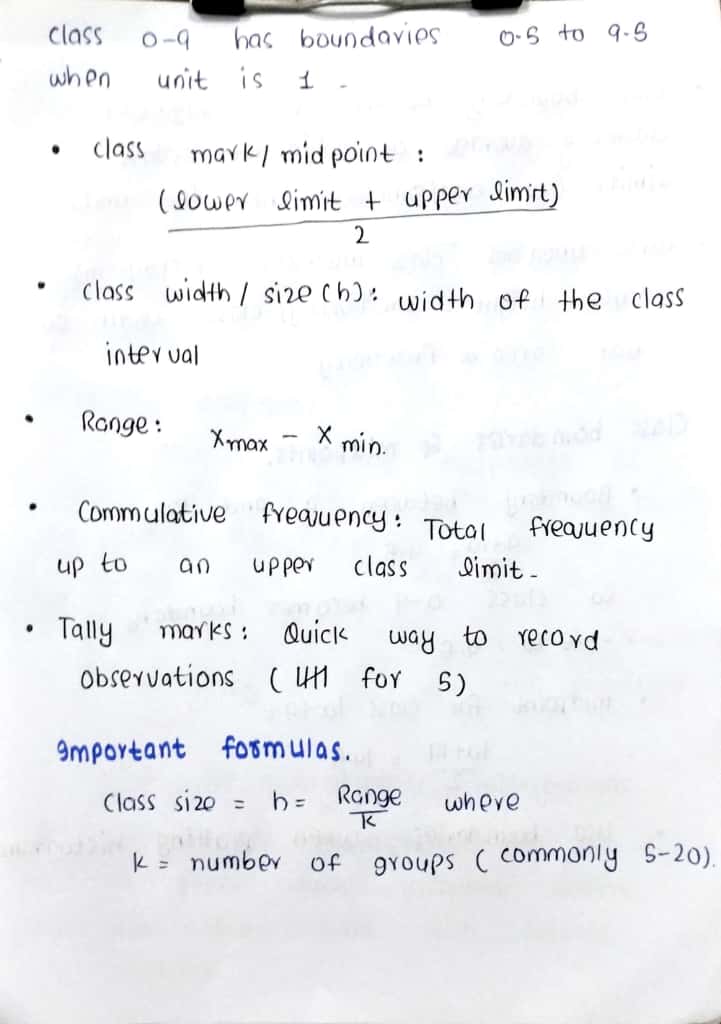 class 0-9 has boundaries 0.5 to 9.5
when unit is 1.
• class mark/midpoint :
(lower limit + upper limit)
2
• class width / size (h): width of the class
interval
• Range: Xmax - X min.
• Commulative frequency: Total frequency
up to an upper class limit.
• Tally marks: Quick way to record
observations (𝍸 for 5)
Important formulas.
Class size = h = Range where
K
k = number of groups (commonly 5-20).